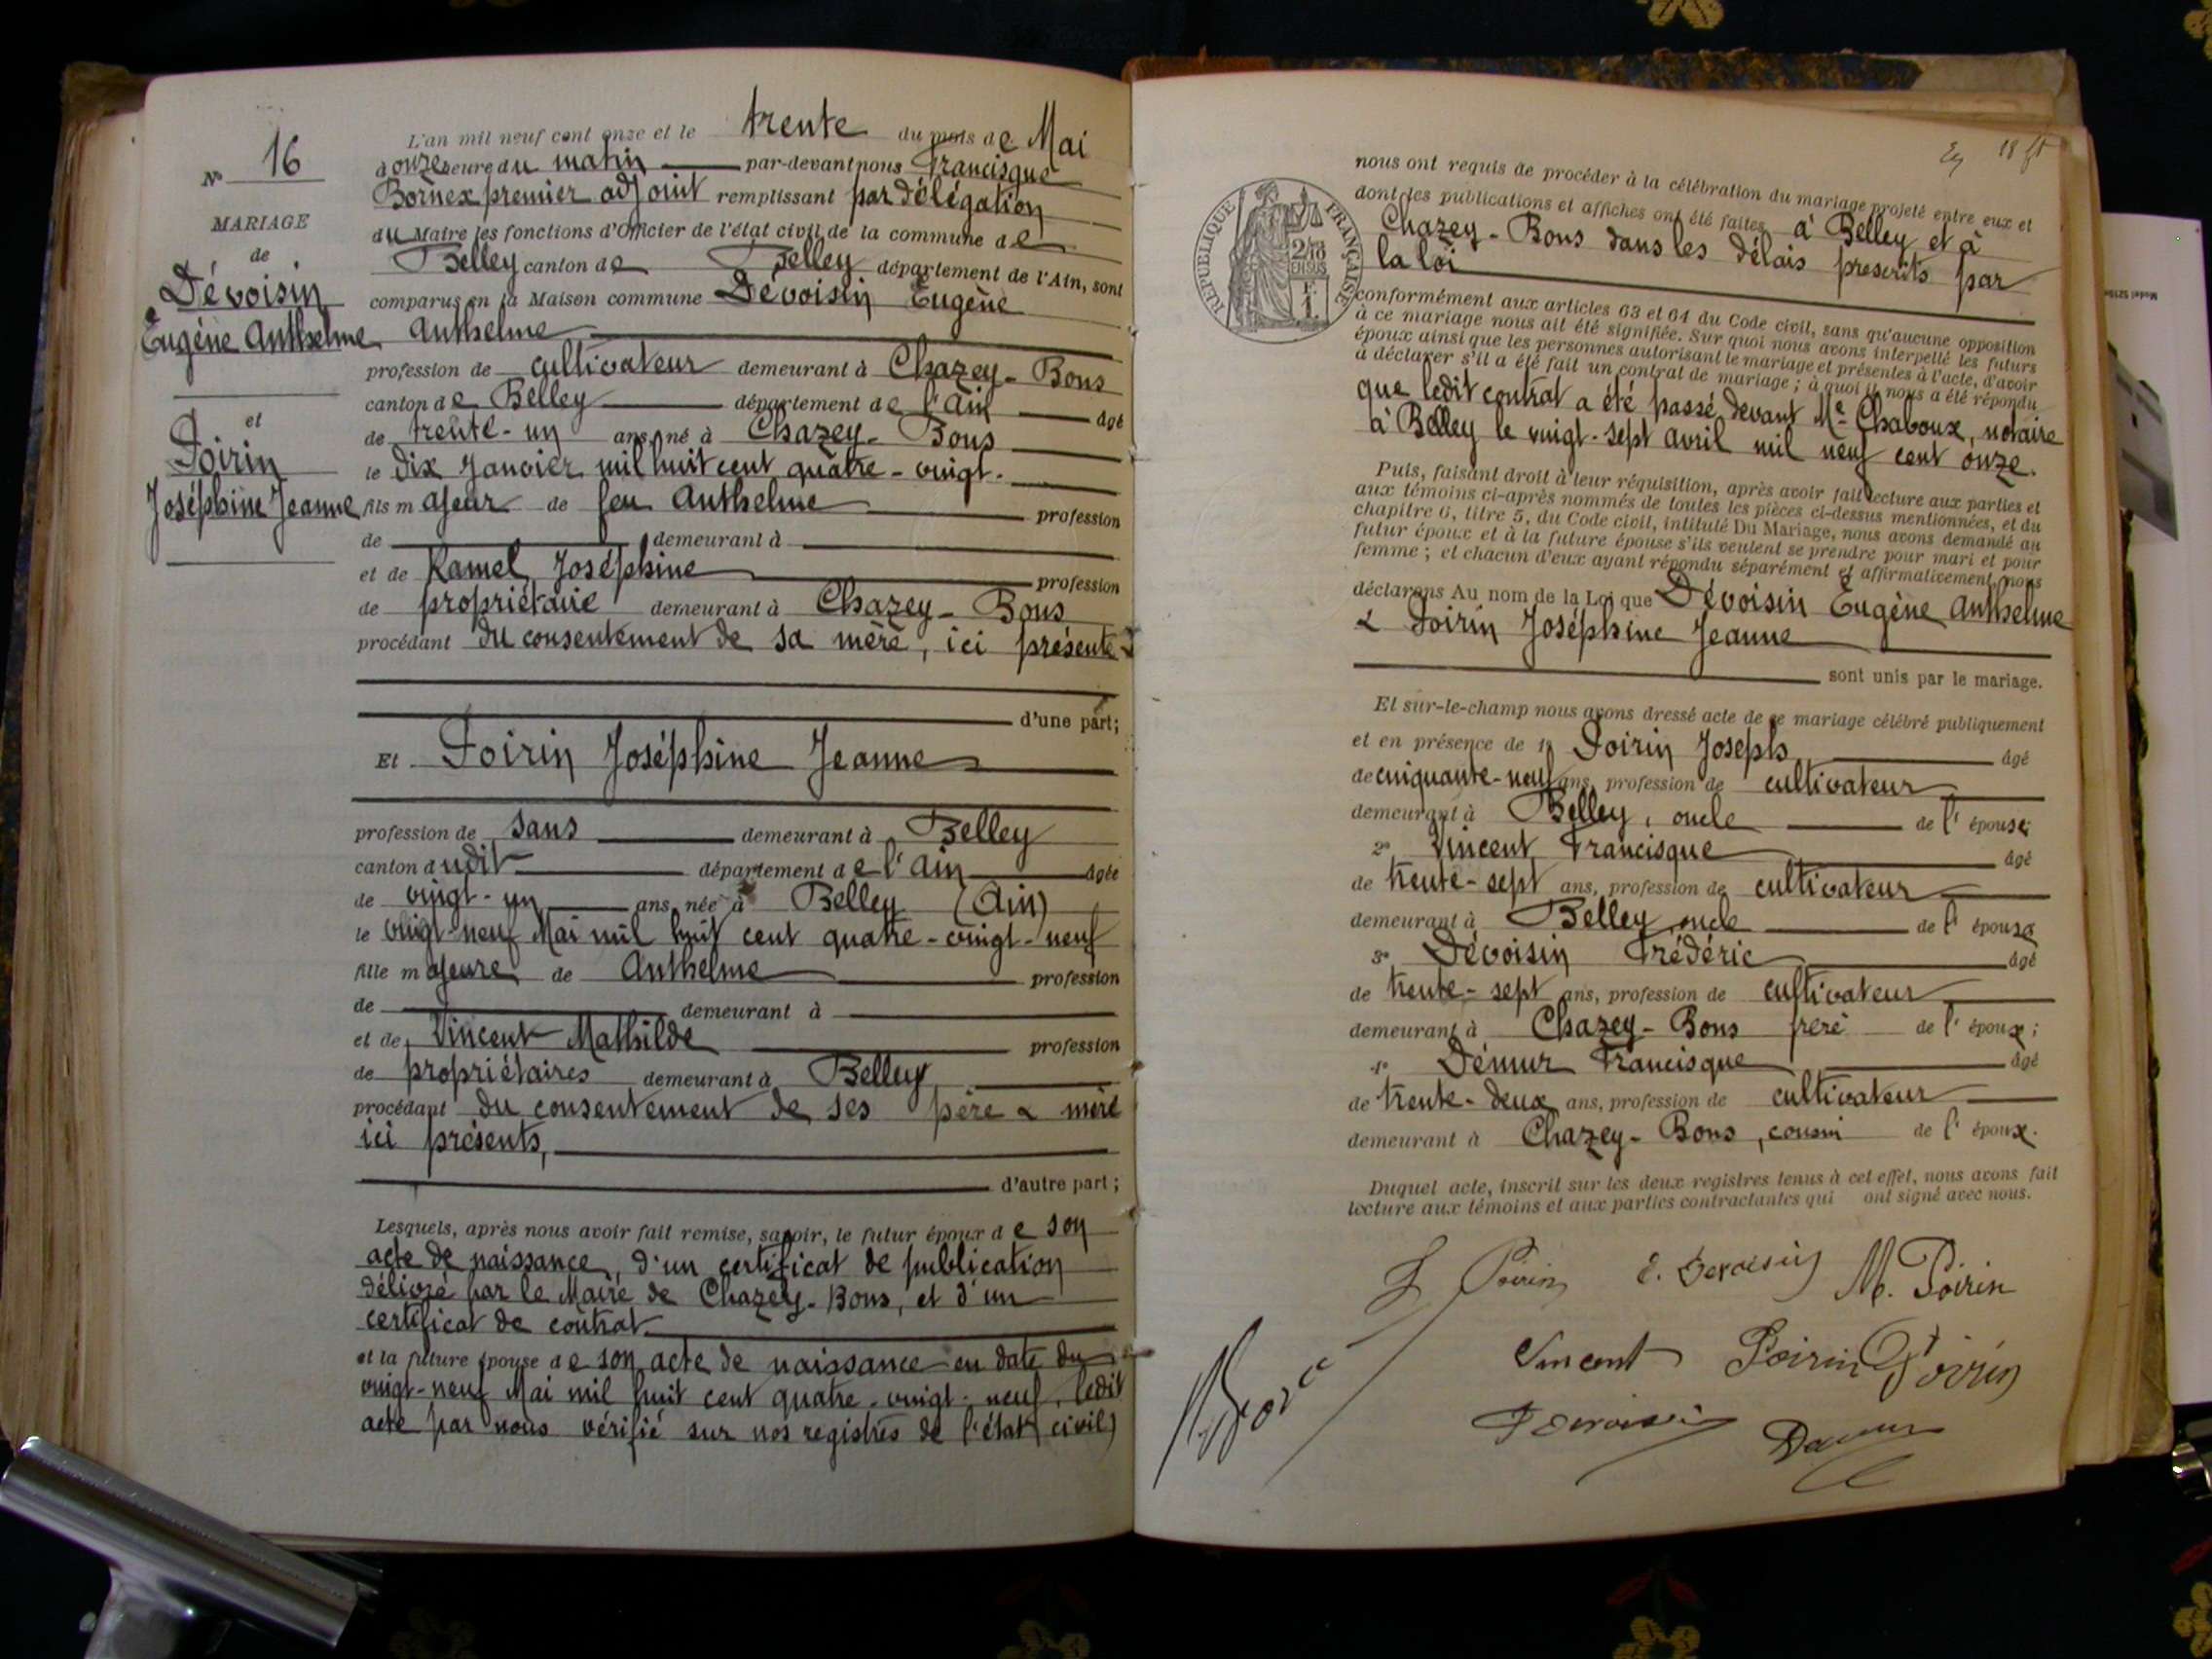 N° 16
MARIAGE
de
Dévoisin
Eugène Anthelme
et
Poirin
Joséphine Jeanne
L'an mil neuf cent onze et le trente du mois de Mai
à onze heure du matin par-devant nous Francisque
Bornex premier adjoint remplissant par délégation
du Maire les fonctions d'Officier de l'état civil de la commune de
Belley canton de Belley département de l'Ain, sont
comparus en la Maison commune Dévoisin Eugène
Anthelme
profession de cultivateur demeurant à Chazey-Bons
canton de Belley département de l'Ain âgé
de trente-un ans, né à Chazey-Bons
le dix Janvier mil huit cent quatre-vingt-
fils majeur de feu Anthelme profession
de demeurant à
et de Ramel Joséphine profession
de propriétaire demeurant à Chazey-Bons
procédant du consentement de sa mère, ici présente
d'une part;
Et Poirin Joséphine Jeanne
profession de sans demeurant à Belley
canton dudit département de l'Ain âgée
de vingt-un ans, née à Belley (Ain)
le vingt-neuf Mai mil huit cent quatre-vingt-neuf
fille majeure de Anthelme profession
de demeurant à
et de Vincent Mathilde profession
de propriétaires demeurant à Belley
procédant du consentement de ses père & mère
ici présents,
d'autre part;
Lesquels, après nous avoir fait remise, savoir, le futur époux de son
acte de naissance, d'un certificat de publication
délivré par le Maire de Chazey-Bons, et d'un
certificat de contrat
et la future épouse de son acte de naissance en date du
vingt-neuf Mai mil huit cent quatre-vingt-neuf, ledit
acte par nous vérifié sur nos registres de l'état civil,
18
RÉPUBLIQUE FRANÇAISE
2/10
EN SUS
F.
1.
nous ont requis de procéder à la célébration du mariage projeté entre eux et
dont les publications et affiches ont été faites à Belley et à
Chazey-Bons dans les délais prescrits par
la loi
conformément aux articles 63 et 64 du Code civil, sans qu'aucune opposition
à ce mariage nous ait été signifiée. Sur quoi nous avons interpellé les futurs
époux ainsi que les personnes autorisant le mariage et présentes à l'acte, d'avoir
à déclarer s'il a été fait un contrat de mariage; à quoi il nous a été répondu
que ledit contrat a été passé devant Me Chaboux, notaire
à Belley le vingt-sept avril mil neuf cent onze.
Puis, faisant droit à leur réquisition, après avoir fait lecture aux parties et
aux témoins ci-après nommés de toutes les pièces ci-dessus mentionnées, et du
chapitre 6, titre 5, du Code civil, intitulé Du Mariage, nous avons demandé au
futur époux et à la future épouse s'ils veulent se prendre pour mari et pour
femme; et chacun d'eux ayant répondu séparément et affirmativement, nous
déclarons Au nom de la Loi que Dévoisin Eugène Anthelme
& Poirin Joséphine Jeanne
sont unis par le mariage.
Et sur-le-champ nous avons dressé acte de ce mariage célébré publiquement
et en présence de 1° Poirin Joseph âgé
de cinquante-neuf ans, profession de cultivateur
demeurant à Belley, oncle de l'épouse;
2° Vincent Francisque âgé
de trente-sept ans, profession de cultivateur
demeurant à Belley oncle de l'épouse
3° Dévoisin Frédéric âgé
de trente-sept ans, profession de cultivateur
demeurant à Chazey-Bons frère de l'époux;
4° Démur Francisque âgé
de trente-deux ans, profession de cultivateur
demeurant à Chazey-Bons, cousin de l'époux.
Duquel acte, inscrit sur les deux registres tenus à cet effet, nous avons fait
lecture aux témoins et aux parties contractantes qui ont signé avec nous.
J Poirin E. Devoisin M. Poirin
Vincent Poirin Poirin
Devoisin Demur